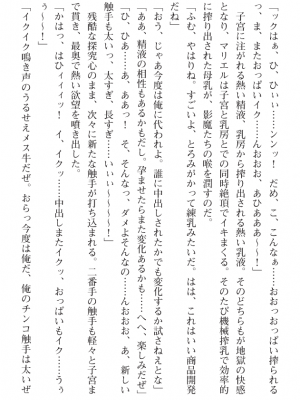 「ッはぁ、ひ、ひぃぃ……ンンッ！　だめ、こ、こんなぁ……おおっおっぱい搾られる
っ、ま、またおっぱいイク……んおおお、あひああぁ～～！」
　子宮に注がれる熱い精液、乳房から搾り出される熱い乳液。そのどちらもが地獄の快感
となり、マリエルは子宮と乳房とでの同時絶頂でイキまくる。そのたび機械搾乳で効率的
に搾り出された母乳が、影魔たちの喉を潤すのだ。
「ふむ、やはりね。すごいよ、とろみがかって練乳みたいだ。はは、これはいい商品開発
だね」
「おう、じゃあ今度は俺に代われよ。誰に中出しされたかでも変化するか試さねえとな」
「ああ、精液の相性もあるかもだし。孕ませたらまた変化あるかも……へへ、楽しみだぜ」
「ひ、ひあ……あ、ああっ！　そ、そんなっ、ダメよそんなの……んおおお、あ、新しい
触手も太いっ、太すぎ、長すぎ……いぃぃ～～～～！」
　残酷な探究心のまま、次々に新たな触手が打ち込まれる。二番手の触手も軽々と子宮ま
で貫き、最奥で熱い欲望を噴き出した。
「かはっ、はひィィィッ！　イ、イクッ……中出しまたイクッ、おっぱいもイク……うぅ
ぅ～～～！」
「イクイク鳴き声のうるせえメス牛だぜ。おらっ今度は俺だ、俺のチンコ触手は太いぜ